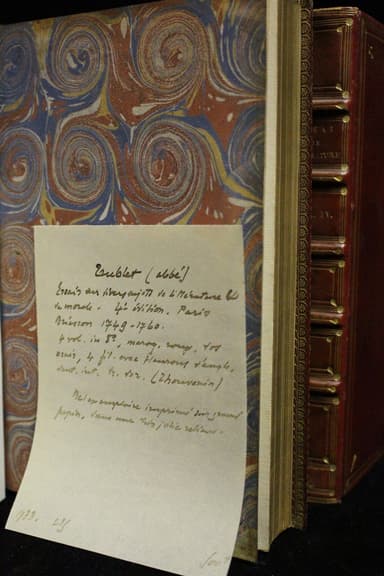 Trublet (abbé)
Essais sur divers sujets de littérature et
de morale. 4e édition. Paris
Briasson 1749-1760.
4 vol. in 8°, maroq. roug. dos
orné, 4 fil. avec fleurons d'angle,
dent. int. tr. dor. (Thouvenin)
Bel exemplaire imprimé sur grand
papier, dans une très jolie reliure.